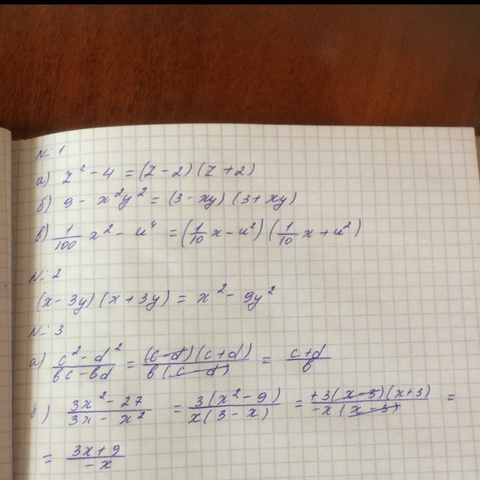 N: 1
а) z² - 4 = (z - 2) (z + 2)
б) 9 - x²y² = (3 - xy) (3 + xy)
в) 1/100 x² - u⁴ = (1/10 x - u²) (1/10 x + u²)
N: 2
(x - 3y) (x + 3y) = x² - 9y²
N: 3
а) c² - d² / bc - bd = (c - d) (c + d) / b (c - d) = c + d / b
в) 3x² - 27 / 3x - x² = 3 (x² - 9) / x (3 - x) = +3 (x - 3) (x + 3) / -x (x - 3) =
= 3x + 9 / -x